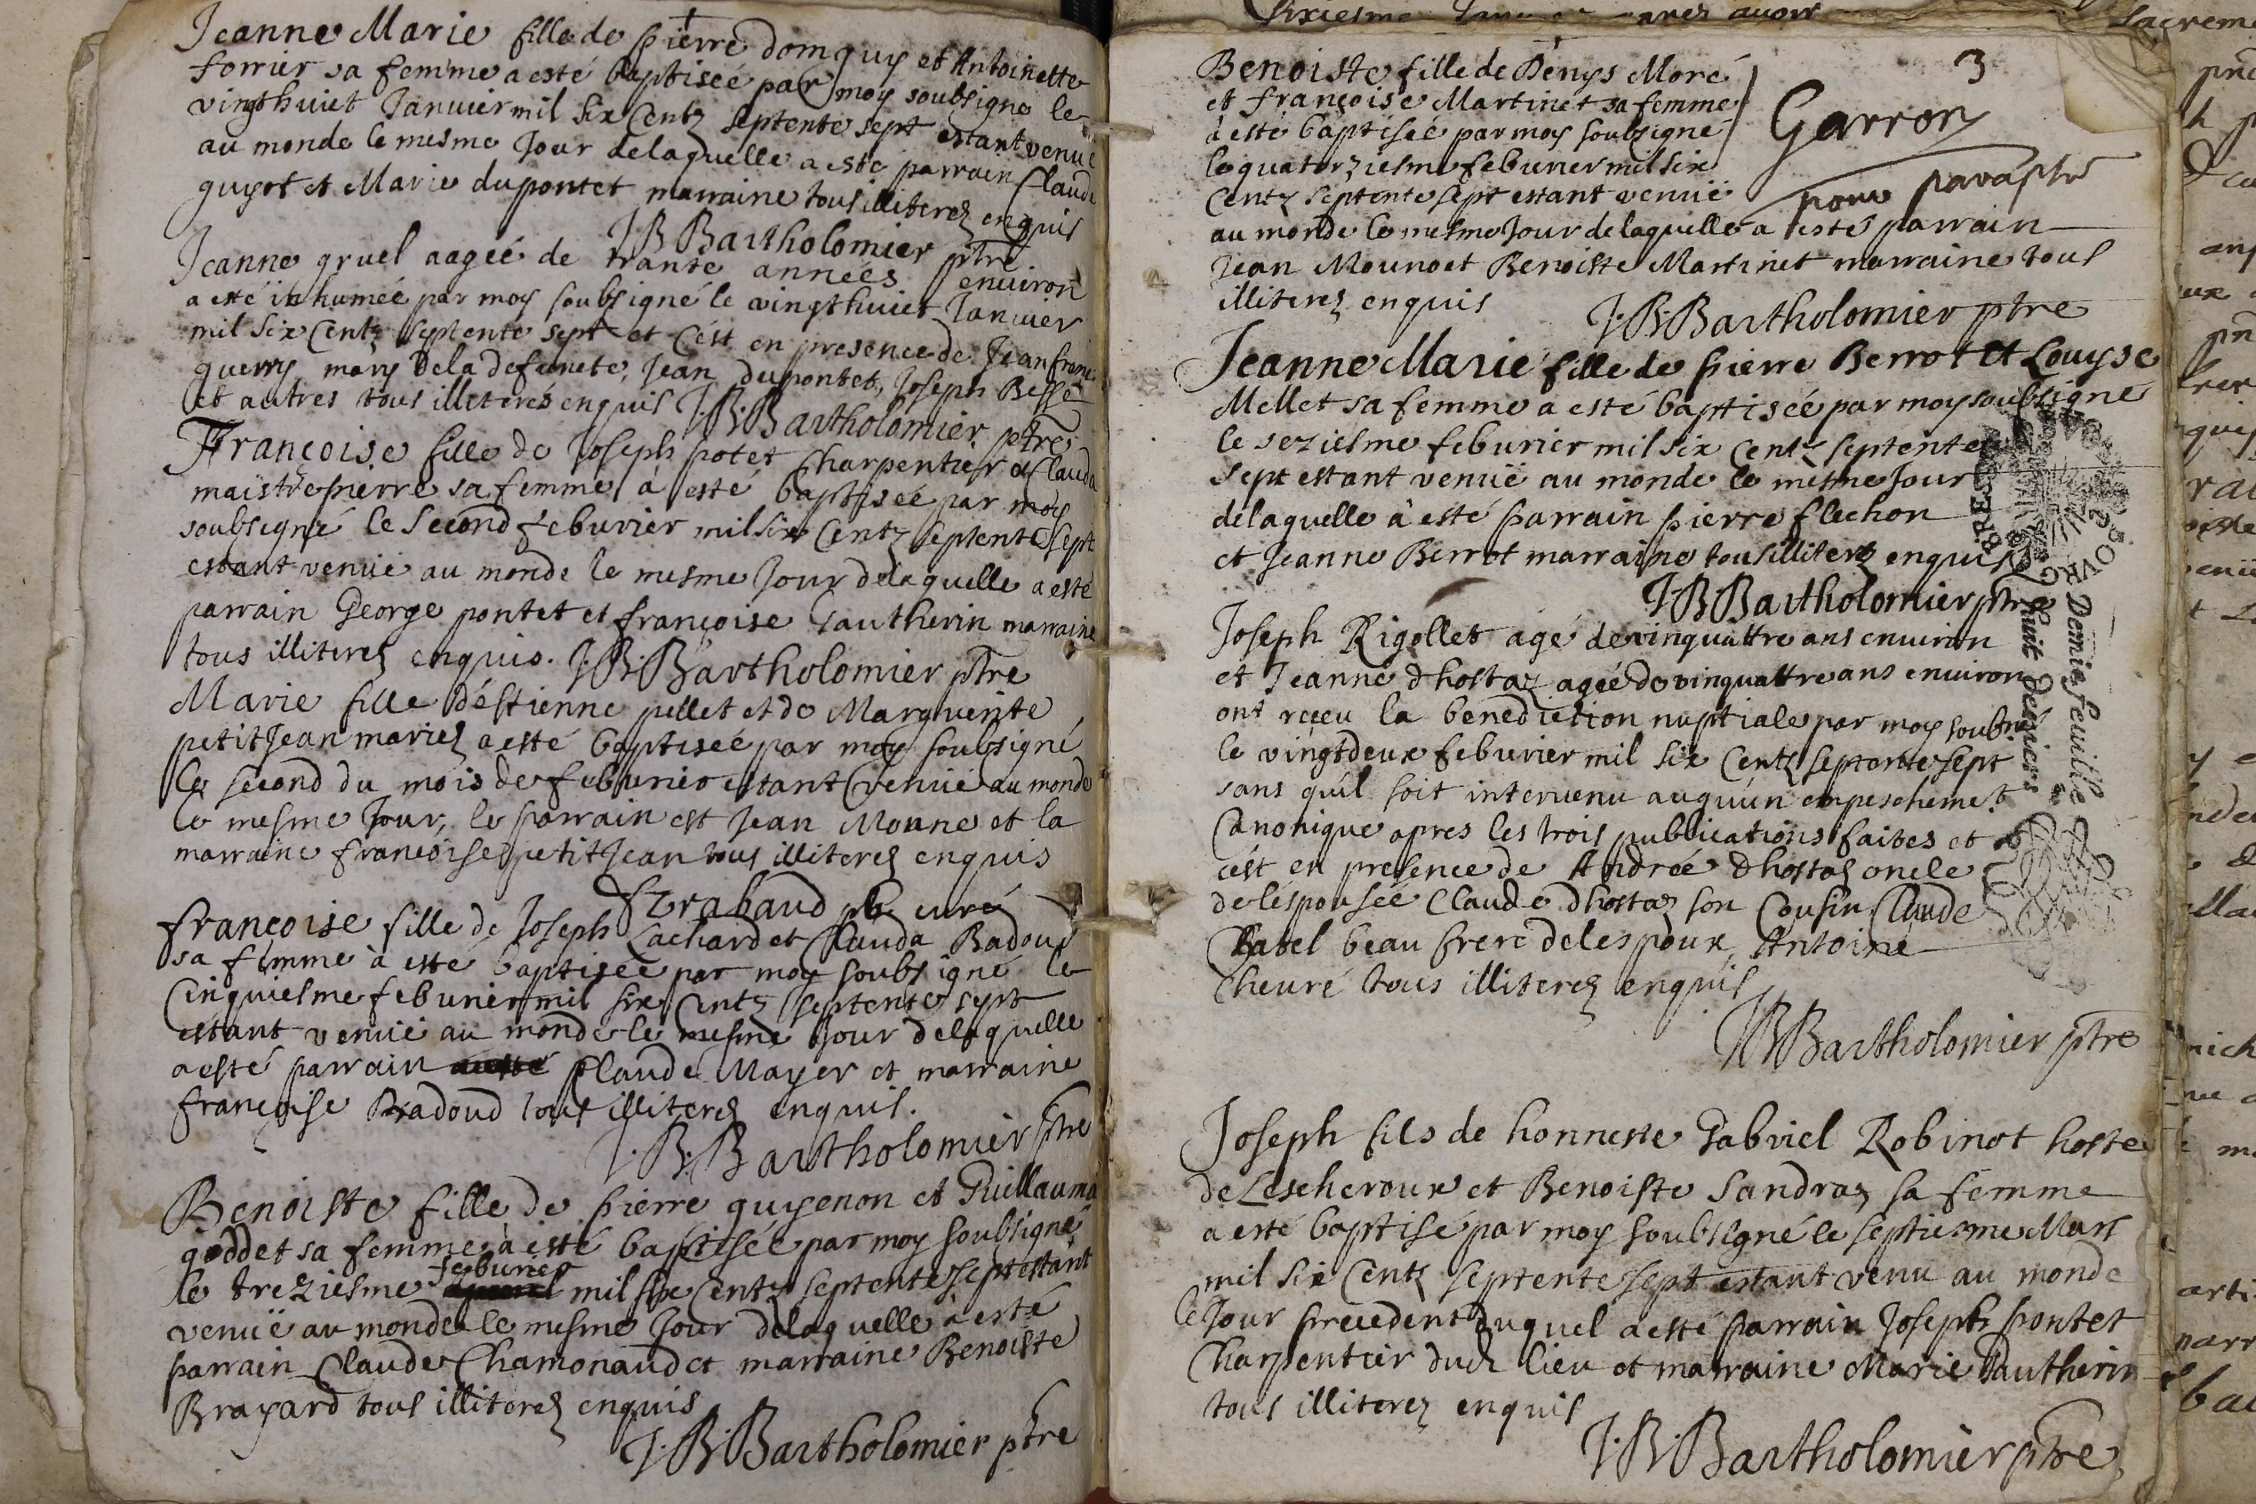 Jeanne Marie fille de pierre domguy et Antoinette
forrier sa femme a esté baptiseé par moy soubsigne le
vingthuict Januier mil six Centz septente sept estant venue
au monde le mesme Jour delaquelle a este parrain Claude
guyot et Marie dupontet marraine tous illiterez enquis
J B Bartholomier ptre
Jeanne gruel aageé de trante années enuiron
a esté inhumeé par moy soubsigné le vingthuict Januier
mil six Centz septente sept et c'est en presence de Jean franc
guerry mary dela defuncte, Jean dupontet, Joseph Besse
et autres tous illiterés enquis J. B. Bartholomier ptre
Francoise fille de Joseph potet Charpentier et Clauda
maistrepierre sa femme à esté baptiseé par moy
soubsigné le second feburier mil six Centz septente sept
estant venüe au monde le mesme Jour delaquelle a esté
parrain George pontet et françoise Gautherin marraine
tous illiterez enquis. J. B. Bartholomier ptre
Marie fille d'éstienne pellet et de Marguerite
petitJean mariez a esté baptiseé par moy soubsigné
le second du mois de feburier estant venüe au monde
le mesme Jour, le parrain est Jean Monne et la
marraine francoise petitJean tous illiterez enquis
Trabaud pbr curé
françoise fille de Joseph Lachard et Clauda Badoud
sa femme à esté baptiseé par moy soubsigné le
Cinquiesme feburier mil six Centz septente sept
estant venüe au monde le mesme Jour delaquelle
a esté parrain Claude Mayer et marraine
françoise Badoud tous illiterez enquis.
J. B. Bartholomier ptre
Benoiste fille de pierre guyenon et Guillauma
goddet sa femme à esté baptisée par moy soubsigné
feburier
le treziesme mil six Centz septente sept estant
venüe au monde le mesme Jour delaquelle à esté
parrain Claude Chamonaud et marraine Benoiste
Brayard tous illiterez enquis
J. B. Bartholomier ptre
3
Benoiste fille de Denys Moré
et françoise Martinet sa femme
à esté baptisée par moy soubsigné
le quatorziesme feburier mil six
Centz septente sept estant venüe
Garron
pour paraphe
au monde le mesme Jour delaquelle a esté parrain
Jean Mouno et Benoiste Martinet marraine tous
illiterez enquis
J. B. Bartholomier ptre
Jeanne Marie fille de pierre Berrot et Louyse
Mellet sa femme a esté baptisée par moy soubsigné
le seziesme feburier mil six Centz septente
sept estant venüe au monde le mesme Jour
delaquelle à esté parrain pierre flechon
et Jeanne Berrot marraine tous illiterez enquis
J. B. Bartholomier ptre
BRESSE
Demie feuille
huit deniers
Joseph Rigollet agé de vinquattre ans enuiron
et Jeanne dhostaz ageé de vinquattre ans enuiron
ont reçeu la benediction nuptiale par moy soubné
le vingtdeux feburier mil six Centz septente sept
sans quil soit interuenu auquun empeschemet
Canonique apres les trois publications faites et
cést en presence de Andreé dhostaz oncle
de léspouseé Claude dhostaz son Cousin Claude
Ravel beau frere delespoux, Antoine
Cheuré tous illiterez enquis
J B Bartholomier ptre
Joseph fils de honneste Gabriel Robinot hoste
de Lescheroux et Benoiste Sandraz sa femme
a esté baptisé par moy soubsigné le septiesme Mars
mil six Centz septente sept estant venu au monde
le Jour precedent duquel a esté parrain Joseph pontet
Charpentier dudt lieu et marraine Marie Gautherin
tous illiterez enquis
J. B. Bartholomier ptre